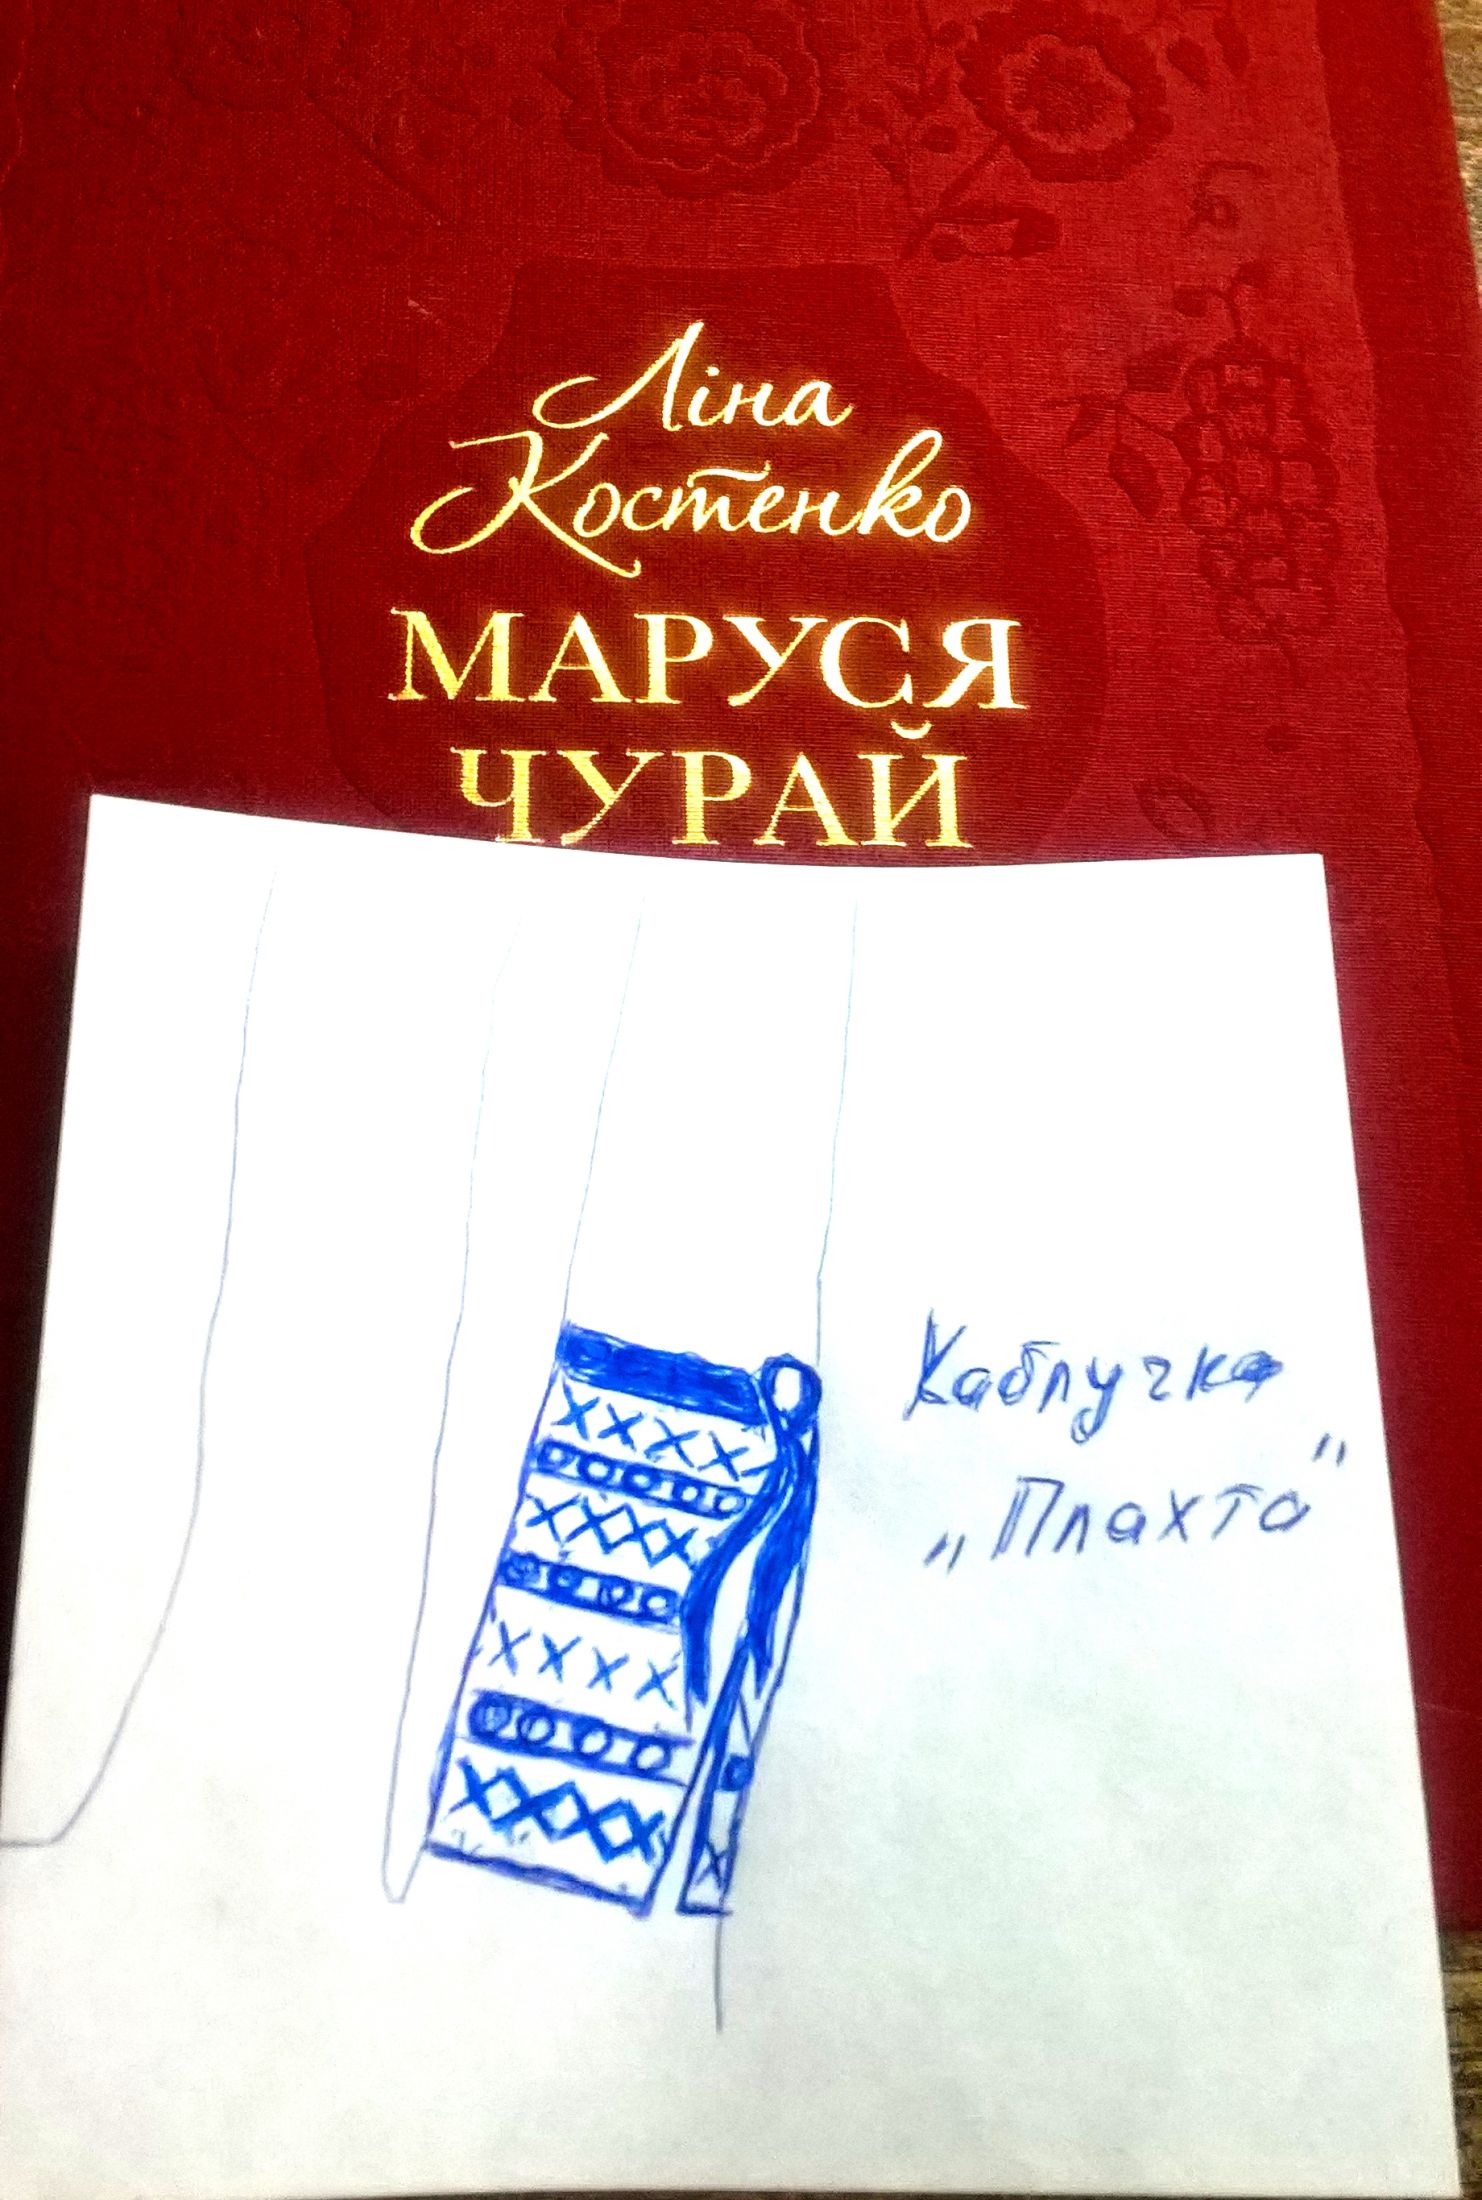 Ліна
Костенко
МАРУСЯ
ЧУРАЙ
Каблучка
„Плахта"